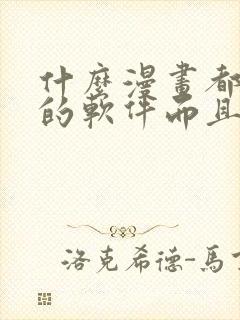 什麼漫畫都
的軟件而且
洛克希德-馬